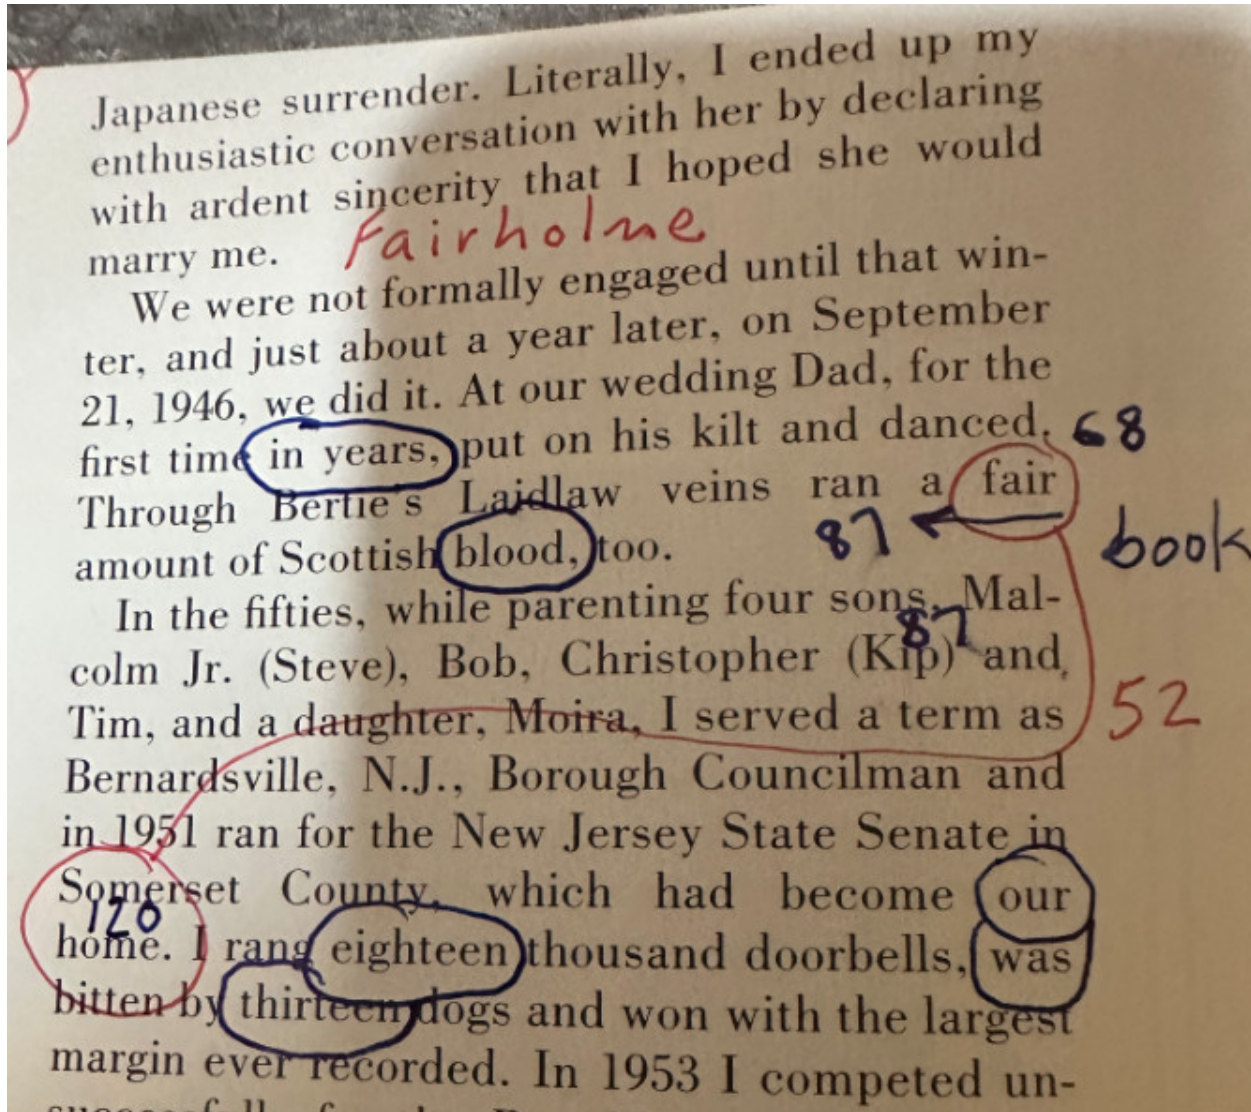 Japanese surrender. Literally, I ended up my
enthusiastic conversation with her by declaring
with ardent sincerity that I hoped she would
marry me. Fairholme
We were not formally engaged until that win-
ter, and just about a year later, on September
21, 1946, we did it. At our wedding Dad, for the
first time in years, put on his kilt and danced. 68
Through Bertie's Laidlaw veins ran a fair
87 book
amount of Scottish blood, too.
In the fifties, while parenting four sons, Mal-
87
colm Jr. (Steve), Bob, Christopher (Kip) and
Tim, and a daughter, Moira, I served a term as 52
Bernardsville, N.J., Borough Councilman and
in 1951 ran for the New Jersey State Senate in
Somerset County, which had become our
120
home. I rang eighteen thousand doorbells, was
bitten by thirteen dogs and won with the largest
margin ever recorded. In 1953 I competed un-